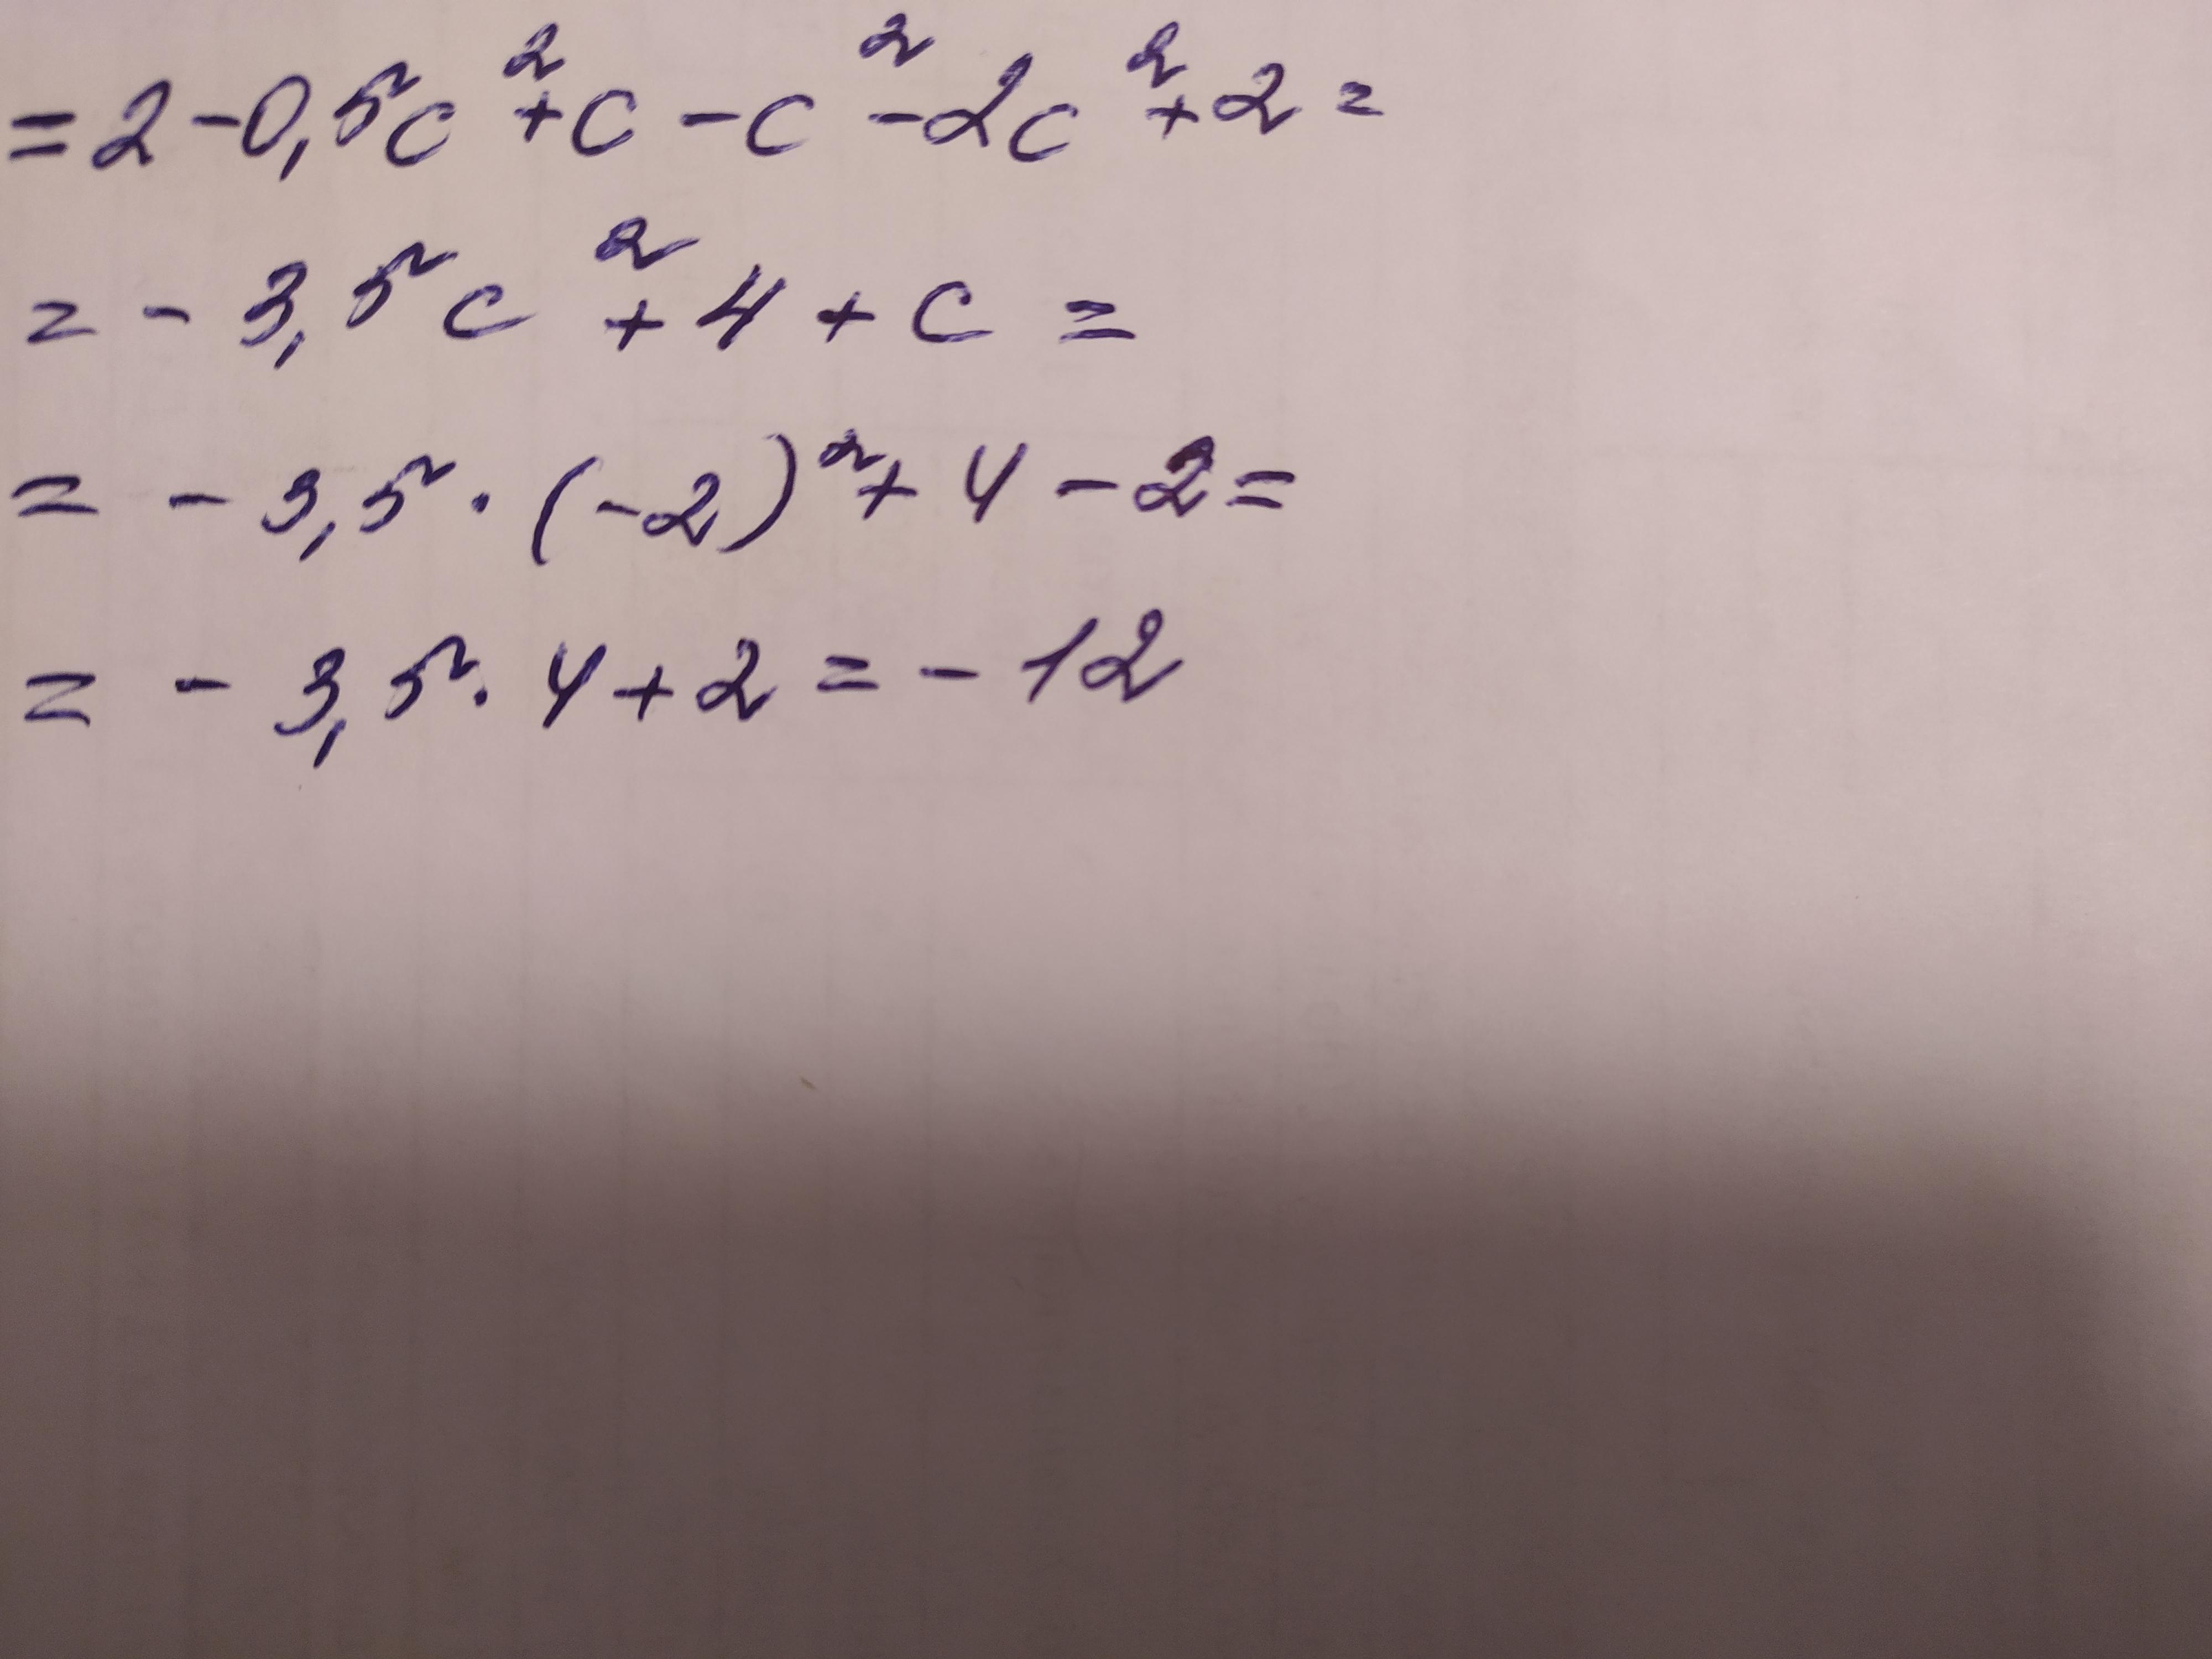 = 2 - 0,5c² + c - c² - 2c² + 2 =
= - 3,5c² + 4 + c =
= - 3,5 · (-2)² + 4 - 2 =
= - 3,5 · 4 + 2 = - 12